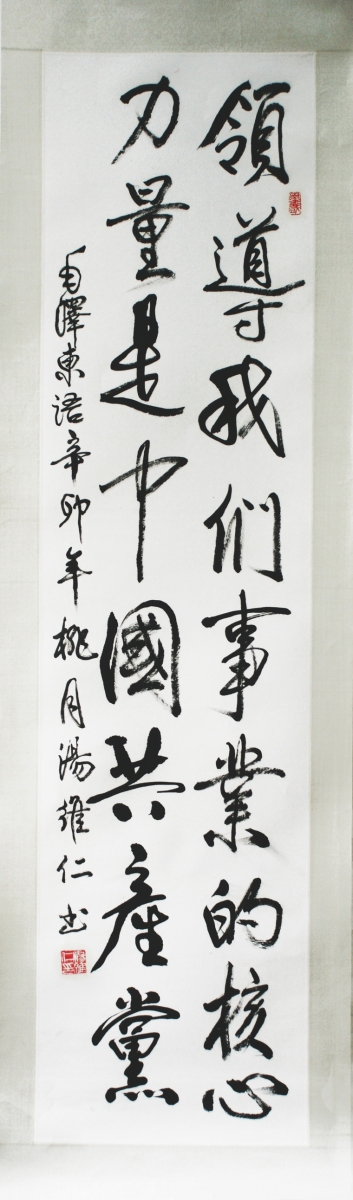 領導我们事業的核心
力量是中國共產黨
毛澤東语辛卯年桃月湯雄仁书